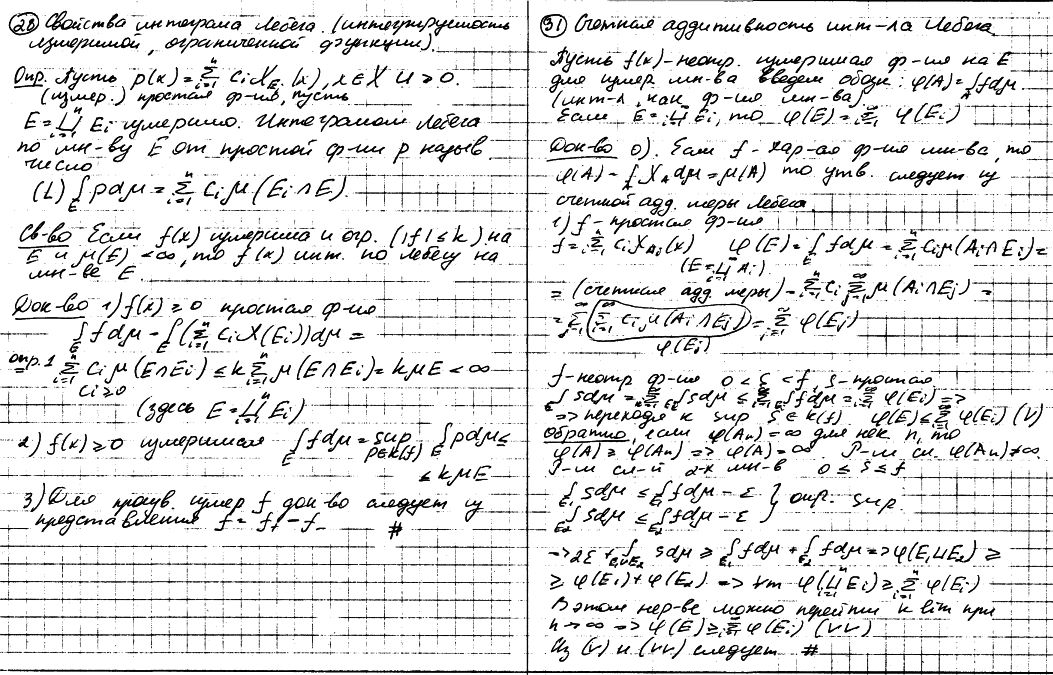 (28) Свойства интеграла Лебега. (интегрируемость
измеримой, ограниченной функции).
Опр. Пусть p(x) = Σ_{i=1}^n c_i χ_{E_i}(x), x∈X и ≥ 0.
(измер.) простая ф-ия, пусть
E = ⊔_{i=1}^n E_i измеримо. Интегралом Лебега
по мн-ву E от простой ф-ии p назыв
число
(L) ∫_E p dμ = Σ_{i=1}^n c_i μ(E_i ∩ E).
Св-во Если f(x) измерима и огр. (|f| ≤ k) на
E и μ(E) < ∞, то f(x) инт. по Лебегу на
мн-ве E.
Док-во 1) f(x) ≥ 0 простая ф-ия
∫_E f dμ = ∫_E (Σ_{i=1}^n c_i χ(E_i)) dμ =
опр.1 = Σ_{i=1}^n c_i μ(E∩E_i) ≤ k Σ_{i=1}^n μ(E∩E_i) = kμE < ∞
c_i ≥ 0
(здесь E = ⊔_{i=1}^n E_i)
2) f(x) ≥ 0 измеримая ∫_E f dμ = sup_{p∈k(f)} ∫_E p dμ ≤
≤ kμE
3) Для произв. измер f док-во следует из
представления f = f_+ - f_- #
(31) Счетная аддитивность инт-ла Лебега
Пусть f(x) - неотр. измеримая ф-ия на E
для измер мн-ва введем обозн: φ(A) = ∫_A f dμ.
(инт-л, как ф-ия мн-ва)
Если E = ⊔_{i=1}^∞ E_i, то φ(E) = Σ_{i=1}^∞ φ(E_i)
Док-во 0). Если f - хар-ая ф-ия мн-ва, то
φ(A) = ∫ χ_A dμ = μ(A) то утв. следует из
счетной адд. меры Лебега
1) f - простая ф-ия
f = Σ_{i=1}^n c_i χ_{A_i}(x) φ(E) = ∫_E f dμ = Σ_{i=1}^n c_i μ(A_i ∩ E_i) =
(E = ⊔_{i=1}^n A_i)
= (счетная адд. меры) = Σ_{i=1}^n c_i Σ_{j=1}^∞ μ(A_i ∩ E_j) =
= Σ_{j=1}^∞ (Σ_{i=1}^n c_i μ(A_i ∩ E_j)) = Σ_{i=1}^∞ φ(E_j)
φ(E_j)
f - неотр ф-ия 0 < S < f, S - простая
∫_E S dμ = Σ_{i=1}^∞ ∫_{E_i} S dμ ≤ Σ_{i=1}^∞ ∫_{E_i} f dμ = Σ_{i=1}^∞ φ(E_i) =>
=> переходя к sup S∈k(f) φ(E) ≤ Σ_{i=1}^∞ φ(E_i) (V)
Обратно, если φ(A_n) = ∞ для нек n, то
φ(A) ≥ φ(A_n) => φ(A) = ∞. Р-м сл. φ(A_n) ≠ ∞
Р-м сл-й 2-х мн-в 0 ≤ S ≤ f
∫_{E_1} S dμ ≤ ∫_{E_1} f dμ - ε } опр. sup.
∫_{E_2} S dμ ≤ ∫_{E_2} f dμ - ε
=> 2ε + ∫_{E_1∪E_2} S dμ ≥ ∫_{E_1} f dμ + ∫_{E_2} f dμ => φ(E_1 ⊔ E_2) ≥
≥ φ(E_1) + φ(E_2) => ∀m φ(⊔_{i=1}^n E_i) ≥ Σ_{i=1}^n φ(E_i)
В этом нер-ве можно перейти к lim при
n → ∞ => φ(E) ≥ Σ_{i=1}^∞ φ(E_i) (VV)
Из (V) и (VV) следует #